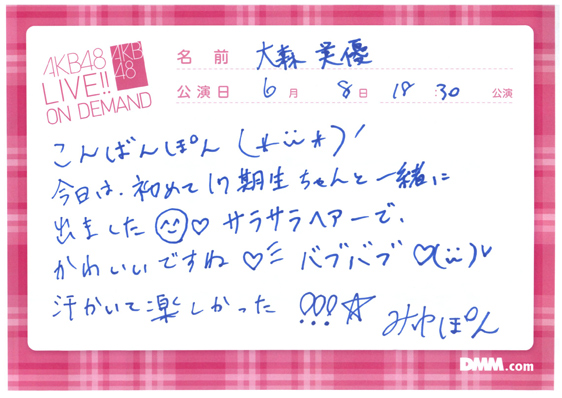 AKB48
LIVE!!
ON DEMAND
AKB
48
名前 大森美優
公演日 6月 8日 18:30 公演
こんばんぽん (*¨*)!
今日は、初めて17期生ちゃんと一緒に
出ました ♡ サラサラヘアーで、
かわいいですね♡ バブバブ ♡(¨)♡
汗かいて楽しかった !!!☆
みゆぽん
DMM.com